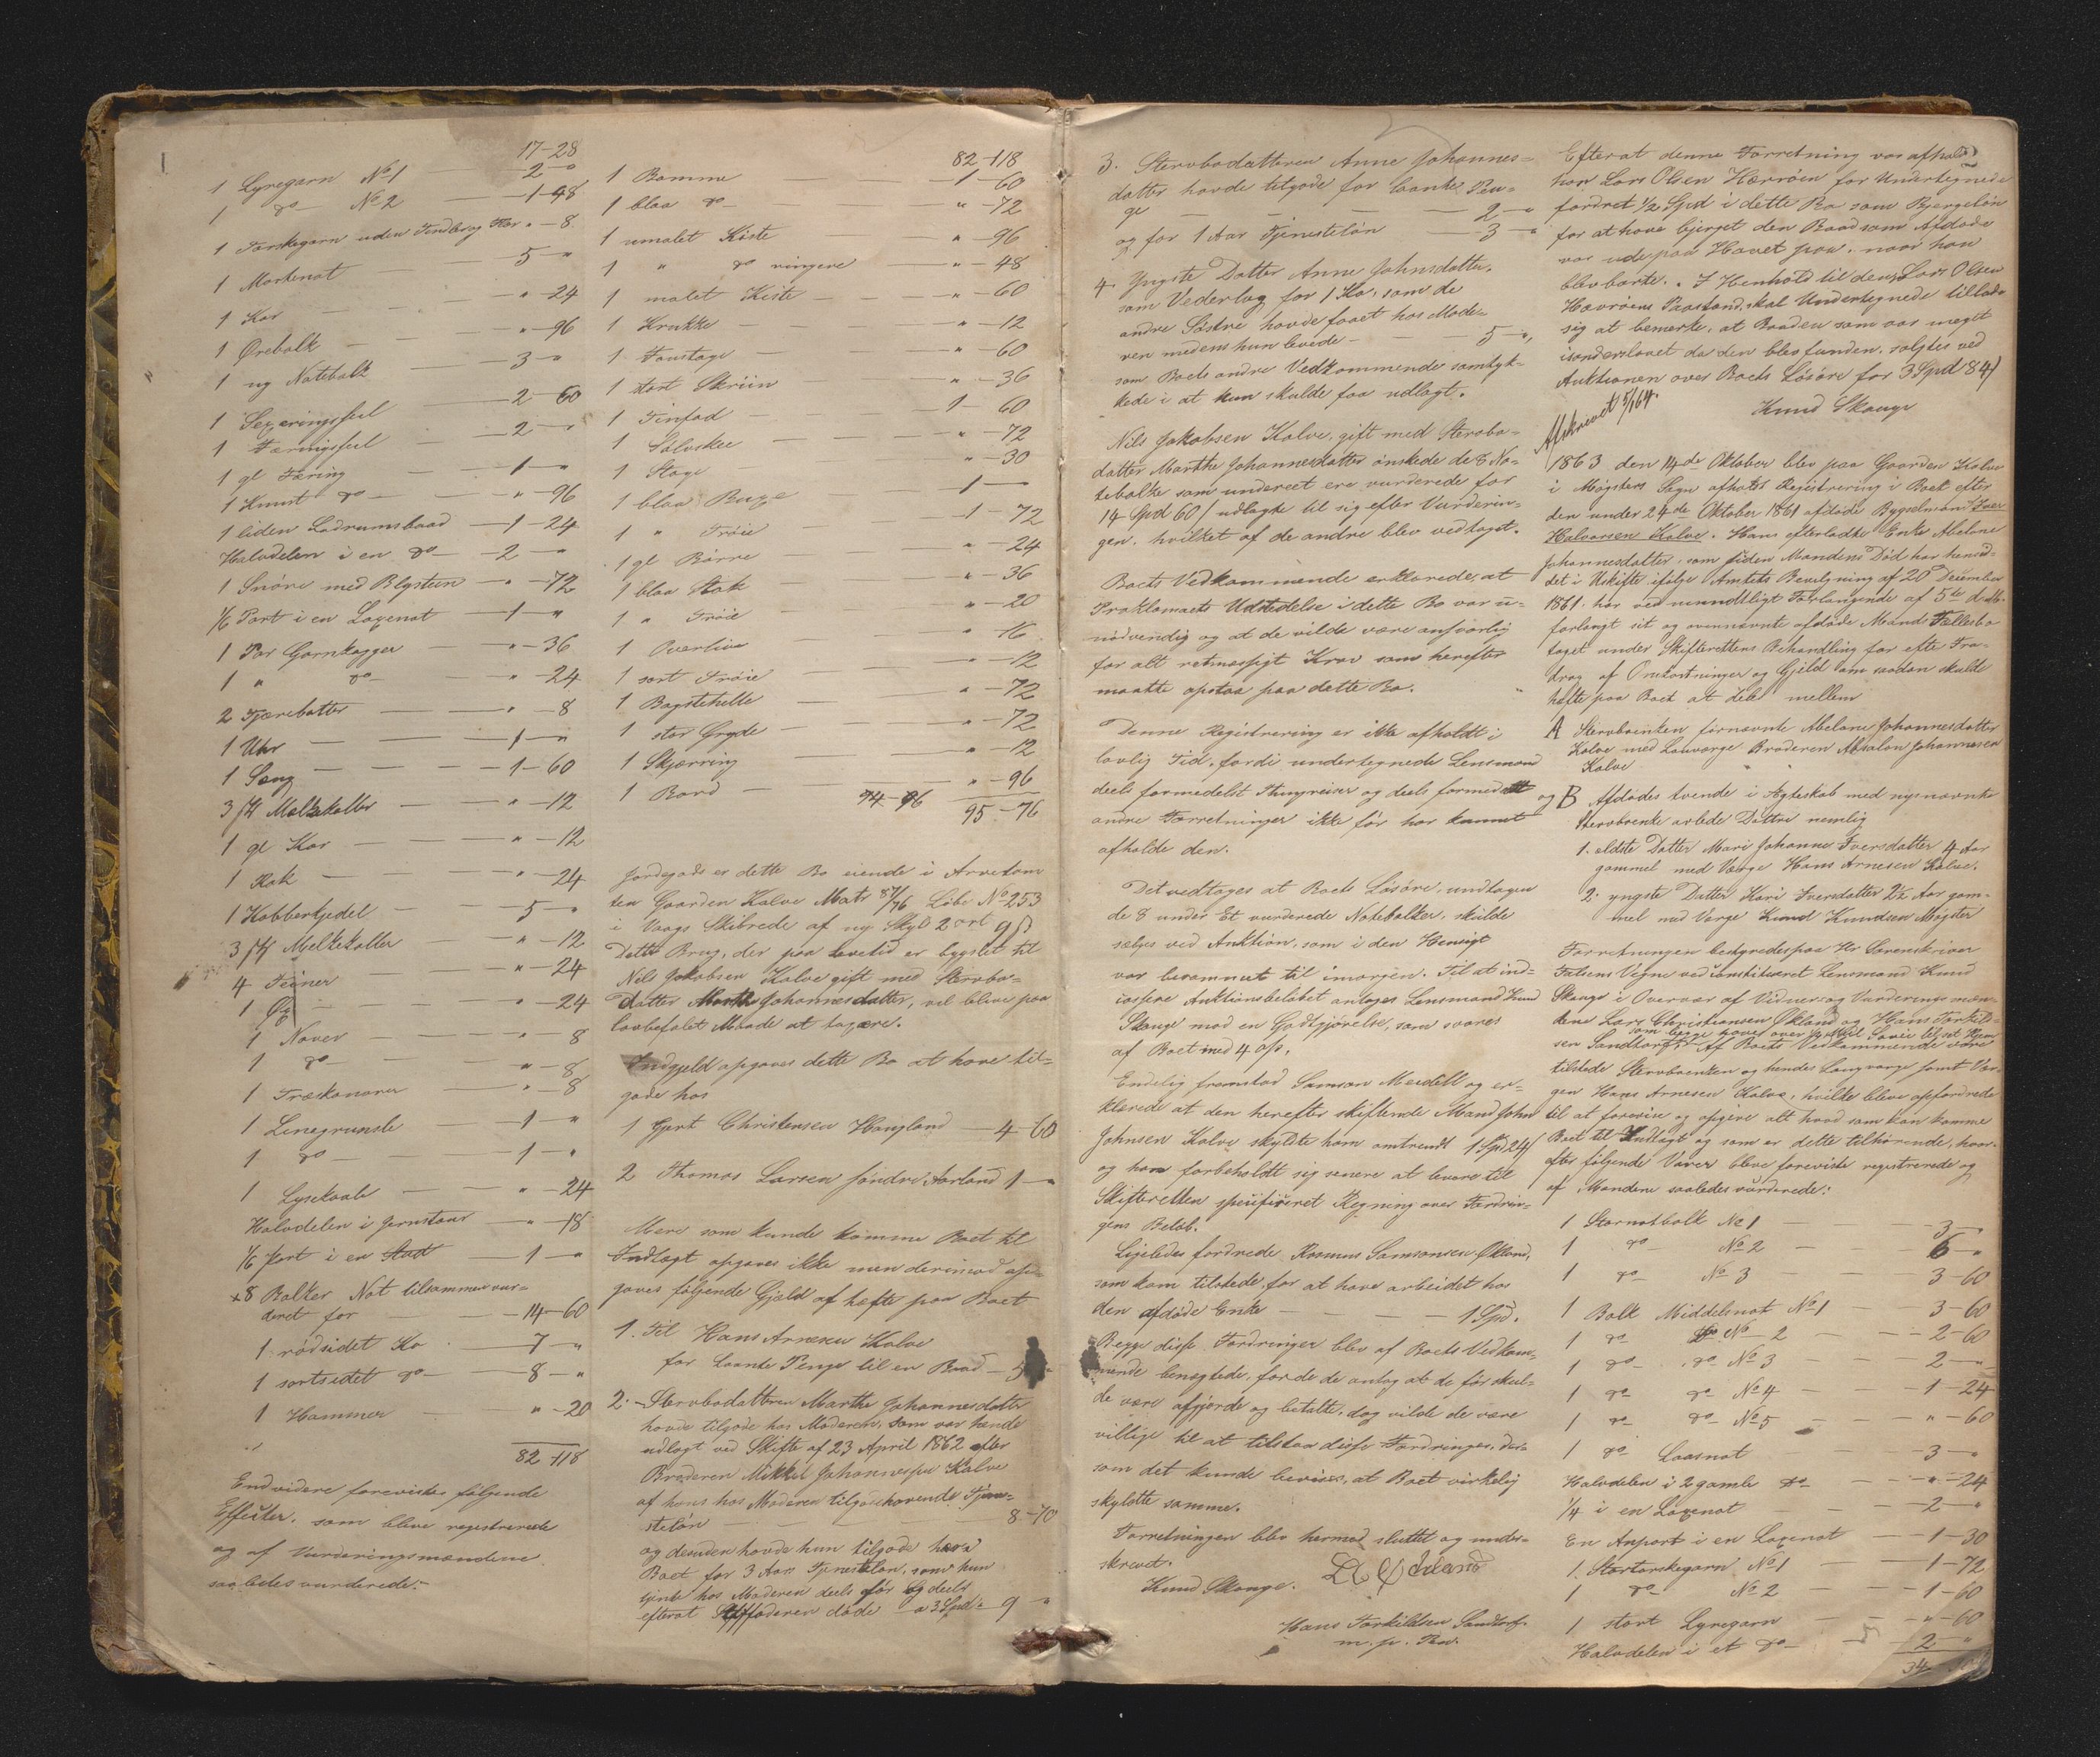 1
17-28
1 Lyregarn No 1 — 2 — "
1 do No 2 — 1-48
1 Torskegarn uden Tendler og Kar " - 8
1 Mortenot — 5 — "
1 Kar — " - 24
1 Ørebalk — " - 96
1 ny Notebalk — 3 — "
1 Sexæringsseil — 2 - 60
1 Færingsseil — 2 — "
1 gl Færing — 1 — "
1 Kunst do — " - 96
1 liden Ladrumsbaad — 1 - 24
Halvdelen i en do — 2 — "
1 Snøre med Blysteen — " - 72
1/6 Part i en Laxenot — 1 — "
1 Par Garnkagger — " - 36
1 " do — " - 24
2 Tjærebøtter — " - 8
1 Uhr — 1 — "
1 Seng — 1 - 60
3 st Melkekoller — " - 12
1 gl Kar — " - 12
1 Rok — " - 24
1 Kobberkjedel — 5 — "
3 st Melkekoller — " - 12
4 Teiner — " - 24
1 Øx — " - 24
1 Naver — " - 8
1 do — " - 8
1 — " - 8
1 Linegrunsle — 1 — "
1 do — 1 — "
1 Lysekaale — " - 24
Halvdelen i Jernstaur — " - 18
1/6 Part i en Stad — 1 — "
+8 Balker Not tilsammen vur-
deret for — 14 - 60
1 rødsidet Ko — 7 — "
1 sortsidet do — 8 — "
1 Hammer — " - 20
82-118
Endvidere forevistes følgende
Effecter, som bleve registrerede
og af Vurderingsmændene
saaledes vurderede:-
82-118
1 Bomme — 1 - 60
1 blaa do — " - 72
1 umalet Kiste — " - 96
1 " do ringere — " - 48
1 malet Kiste — " - 60
1 Krukke — " - 12
1 — " - 60
1 stort Skriin — " - 36
1 Tinfad — 1 - 60
1 Sølvskee — " - 72
1 Stage — " - 30
1 blaa Buxe — 1 — "
1 " Trøie — 1 - 72
1 gl — " - 24
1 blaa Stak — " - 36
1 " Trøie — " - 20
1 Overliv — " - 16
1 sort Trøie — " - 12
1 Bagstehelle — " - 72
1 stor Gryde — " - 72
1 Skjærring — " - 12
1 Bord — " - 96
94-96 95-76
Jordegods er dette Bo eiende i Arvetom
ten Gaarden Kalve Matr 87/76 Løbe No 253
i Vaags Skibrede af ny Skyld 2 ort 9 ß
Dette Brug, der paa Levetid er bygslet til
Nils Jakobsen Kalve gift med Stervbo-
datter Marthe Johannesdatter, vil blive paa
lovbefalet Maade at taxere.
Indgjeld opgaves dette Bo at have til-
gode hos
1 Gjert Christensen Haugland — 4 - 60
2 Thomas Larsen søndre Aarland 1 — "
Mere som kunde komme Boet til
Indtægt opgaves ikke men derimod op-
gaves følgende Gjæld at hefte paa Boet
1. Til Hans Arnesen Kalve
for laante Penge til en Baad — 5
2. Stervbodatteren Marthe Johannesdatter
havde tilgode hos Moderen, som var hende
udlagt ved Skifte af 23 April 1862 efter
Broderen Mikkel Johannessen Kalve
af hans hos Moderen tilgodehavende Tjene-
steløn — 8 - 70
og desuden havde hun tilgode hos
Boet for 3 Aars Tjenesteløn, som hun
tjente hos Moderen deels før og deels
efterat Stiffaderen døde — a 3 Spd = 9 "
3. Stervbodatteren Anne Johannes-
datter havde tilgode for laante Pen-
ge — 2 — "
og for 1 Aar Tjenesteløn — 3 — "
4. Yngste Datter Anne Johnsdatter,
som Vederlag for 1 Ko, som de
andre Søstre havde faaet hos Mode-
ren medens hun levede — 5 — ",
som Boets andre Vedkommende samtyk-
kede i at hun skulde faa udlagt.
Nils Jakobsen Kalve, gift med Stervbo-
datter Marthe Johannesdatter ønskede de 8 No-
tebalke som undereet ere vurderede for
14 Spd 60 ß udlagte til sig efter Vurderin-
gen, hvilket af de andre blev vedtaget.
Boets Vedkommende erklærede, at
Proklamaets Udstedelse i dette Bo var u-
nødvendig og at de vilde være ansvarlig
for alt retmæssigt Krav som herefter
maatte opstaa paa dette Bo.
Denne Registrering er ikke afholdt i
lovlig Tid, fordi undertegnede Lensmand
deels formedelst Thingreiser og deels formedelst
andre Forretninger ikke før har kunnet
afholde den.
Det vedtages at Boets Løsøre, undtagen
de 8 under Et vurderede Notebalker, skulde
sælges ved Auktion, som i den Hensigt
var berammet til imorgen. Til at ind-
cassere Auktionsbeløbet antages Lensmand Knud
Skauge mod en Godtgjørelse, som svares
af Boet med 4 op.
Endelig fremstod Samson Meidell og er-
klærede at den herefter skiftende Mand John
Johnsen Kalve skyldte ham omtrendt 1 Spd 24 ß
og han forbeholdt sig senere at levere til
Skifteretten specificeret Regning over Fordrin-
gens Beløb.
Ligeledes fordrede Rasmus Samsonsen Økland,
som kom tilstede, for at have arbeidet hos
den afdøde Enke — 1 Spd.
Begge disse Fordringer blev af Boets Vedkom-
mende benegtede, fordi de antog at de før skul-
de være afgjorde og betalte, dog vilde de være
villige til at tilstaa disse Fordringer, der-
som det kunde bevises, at Boet virkelig
skyldte samme.
Forretningen blev hermed sluttet og under-
skrevet.
Knud Skauge. L C Økland
Hans Torkildsen Sandtorf.
m. p. Pen.
Efterat denne Forretning var afholdt
har Lars Olsen Hærrøen for Undertegnede
fordret 1/2 Spd i dette Bo som Bjergeløn
for at have bjerget den Baad som Afdøde
var ude paa Havet paa, naar han
blev borte. I Henhold til denne Lars Olsen
Hævrøens Paastand, skal Undertegnede tillade
sig at bemerke, at Baaden som var meget
isønderslaaet da den blev funden, solgtes ved
Auktionen over Boets Løsøre for 3 Spd 84 ß
Knud Skauge
Afskrevet 5/1 64.
1863 den 14de Oktober blev paa Gaarden Kalve
i Møgsters Sogn afholdt Registrering i Boet efter
den under 24de Oktober 1861 afdøde Bygselmand Iver
Halvorsen Kalve. Hans efterladte Enke Abelone
Johannesdatter, som siden Mandens Død har hensid-
det i Uskifte ifølge Amtets Bevilgning af 20 December
1861, har ved mundtligt Forlangende af 5te d. M.
forlangt sit og ovennævnte afdøde Mands Fællesbo
taget under Skifterettens Behandling for efter Fra-
drag af Omkostninger og Gjeld om saadan skulde
hefte paa Boet at dele mellem
A Stervboenken førnævnte Abelone Johannesdatter
Kalve med Laugværge Broderen Absalon Johannesen
Kalve
og B Afdødes tvende i Ægteskab med nysnævnte
Stervboenke avlede Døttre nemlig
1. ældste Datter Mari Johanne Iversdatter 4 Aar
gammel med Værge Hans Arnesen Kalve.
2. yngste Datter Kari Iversdatter 2 1/2 Aar gam-
mel med Værge Knud Knudsen Møgster
Forretningen bestyredes paa Hr Sorenskriver
Falsens Vegne ved Lensmand Knud
Skauge i Overvær af Vidner og Vurderingsmæn-
dene Lars Christiansen Økland og Hans Torkild-
sen Sandtorf, Af Boets Vedkommende vare
tilstede Stervboenken og hendes Laugværge samt Vær-
gen Hans Arnesen Kalve, hvilke bleve opfordrede
til at forevise og opgive alt hvad som kan komme
Boet til Indtægt og som er dette tilhørende, hvor-
efter følgende Varer bleve foreviste registrerede og
af Mændene saaledes vurderede:
1 Stornotbalk No 1 — 3 — "
1 do No 2 — 6 — "
1 do No 3 — 3-60
1 Balk Middelsnot No 1 3-60
1 do do No 2 — 2-60
1 do do No 3 — 2 — "
1 do do No 4 — 1-24
1 do do No 5 — " - 60
1 do Laasnot — 3 — "
Halvdelen i 2 gamle do — " - 24
1/4 i en Laxenot — 2 — "
En Anpart i en Laxenot — 1-30
1 Stortorskegarn No 1 — 1-72
1 do No 2 — 1-60
1 stort Lyregarn — " - 60
Halvdelen i et do — 2 — "
34